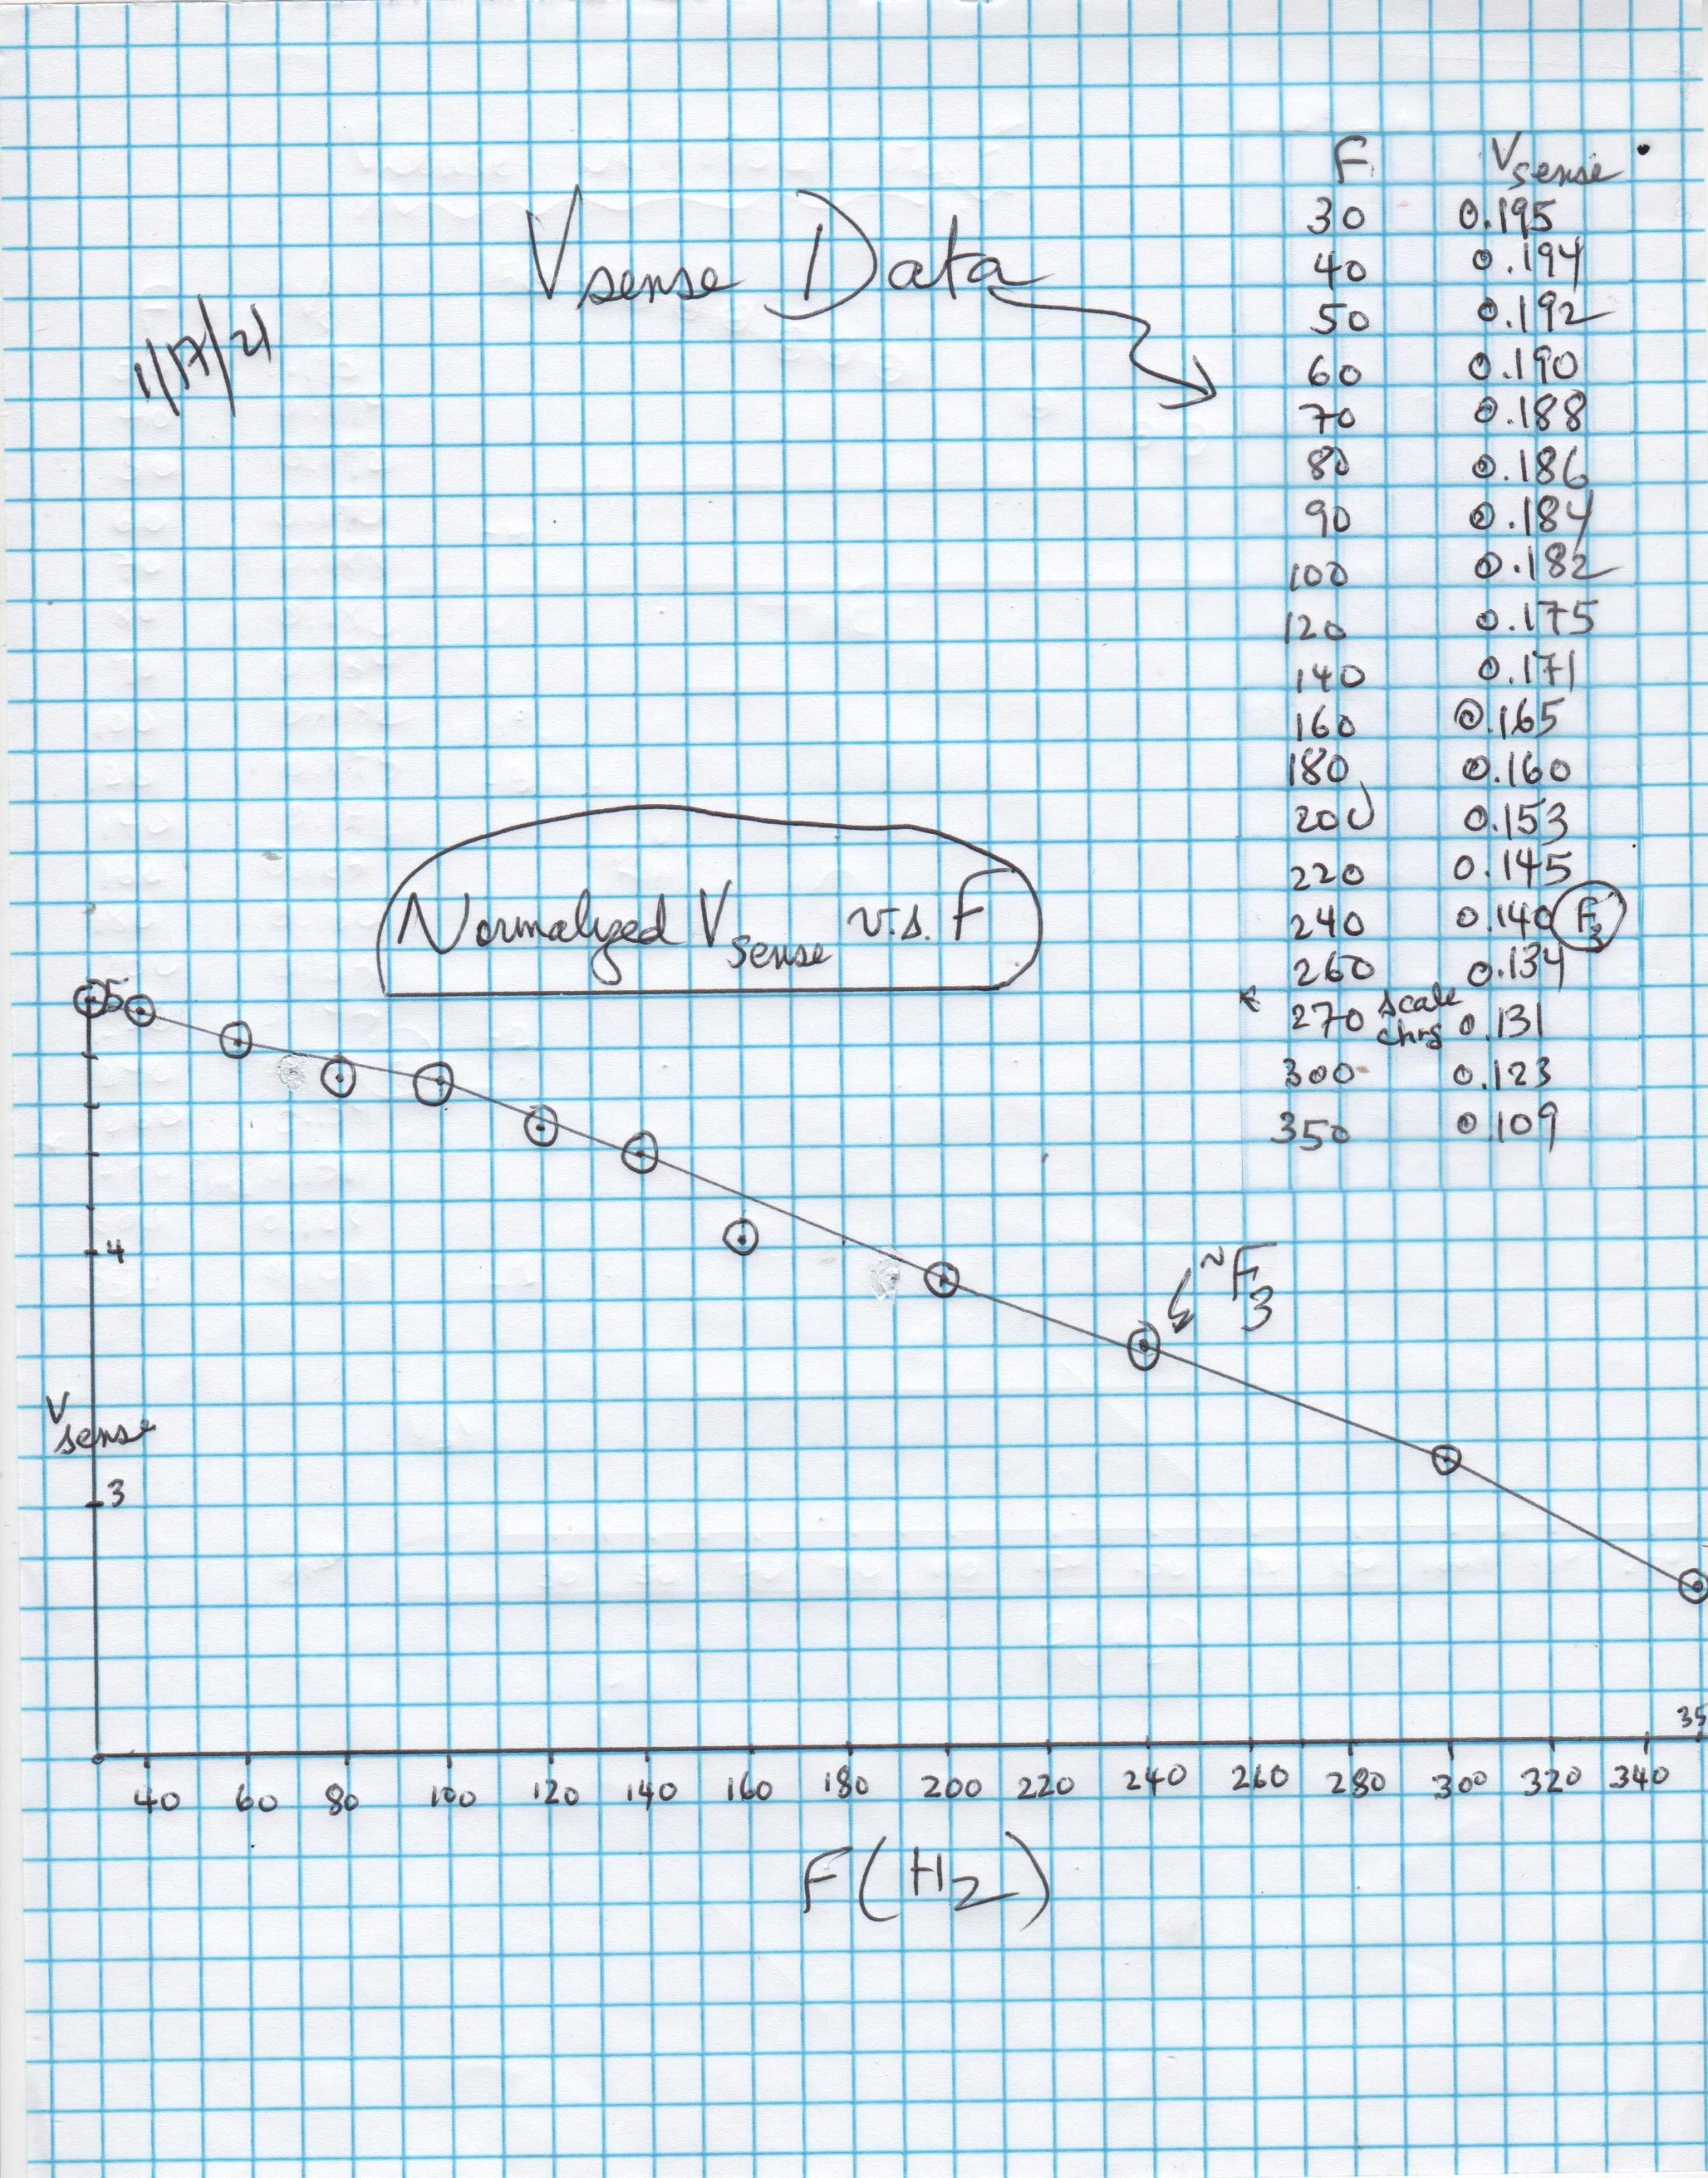 F Vsense
Vsense Data
1/17/21
30 0.195
40 0.194
50 0.192
60 0.190
70 0.188
80 0.186
90 0.184
100 0.182
120 0.175
140 0.171
160 0.165
180 0.160
200 0.153
220 0.145
240 0.140 F3
260 0.134
270 scale chng 0.131
300 0.123
350 0.109
Normalyzed Vsense v.s. F
5
4
~F3
Vsense
3
35
40 60 80 100 120 140 160 180 200 220 240 260 280 300 320 340
F(Hz)